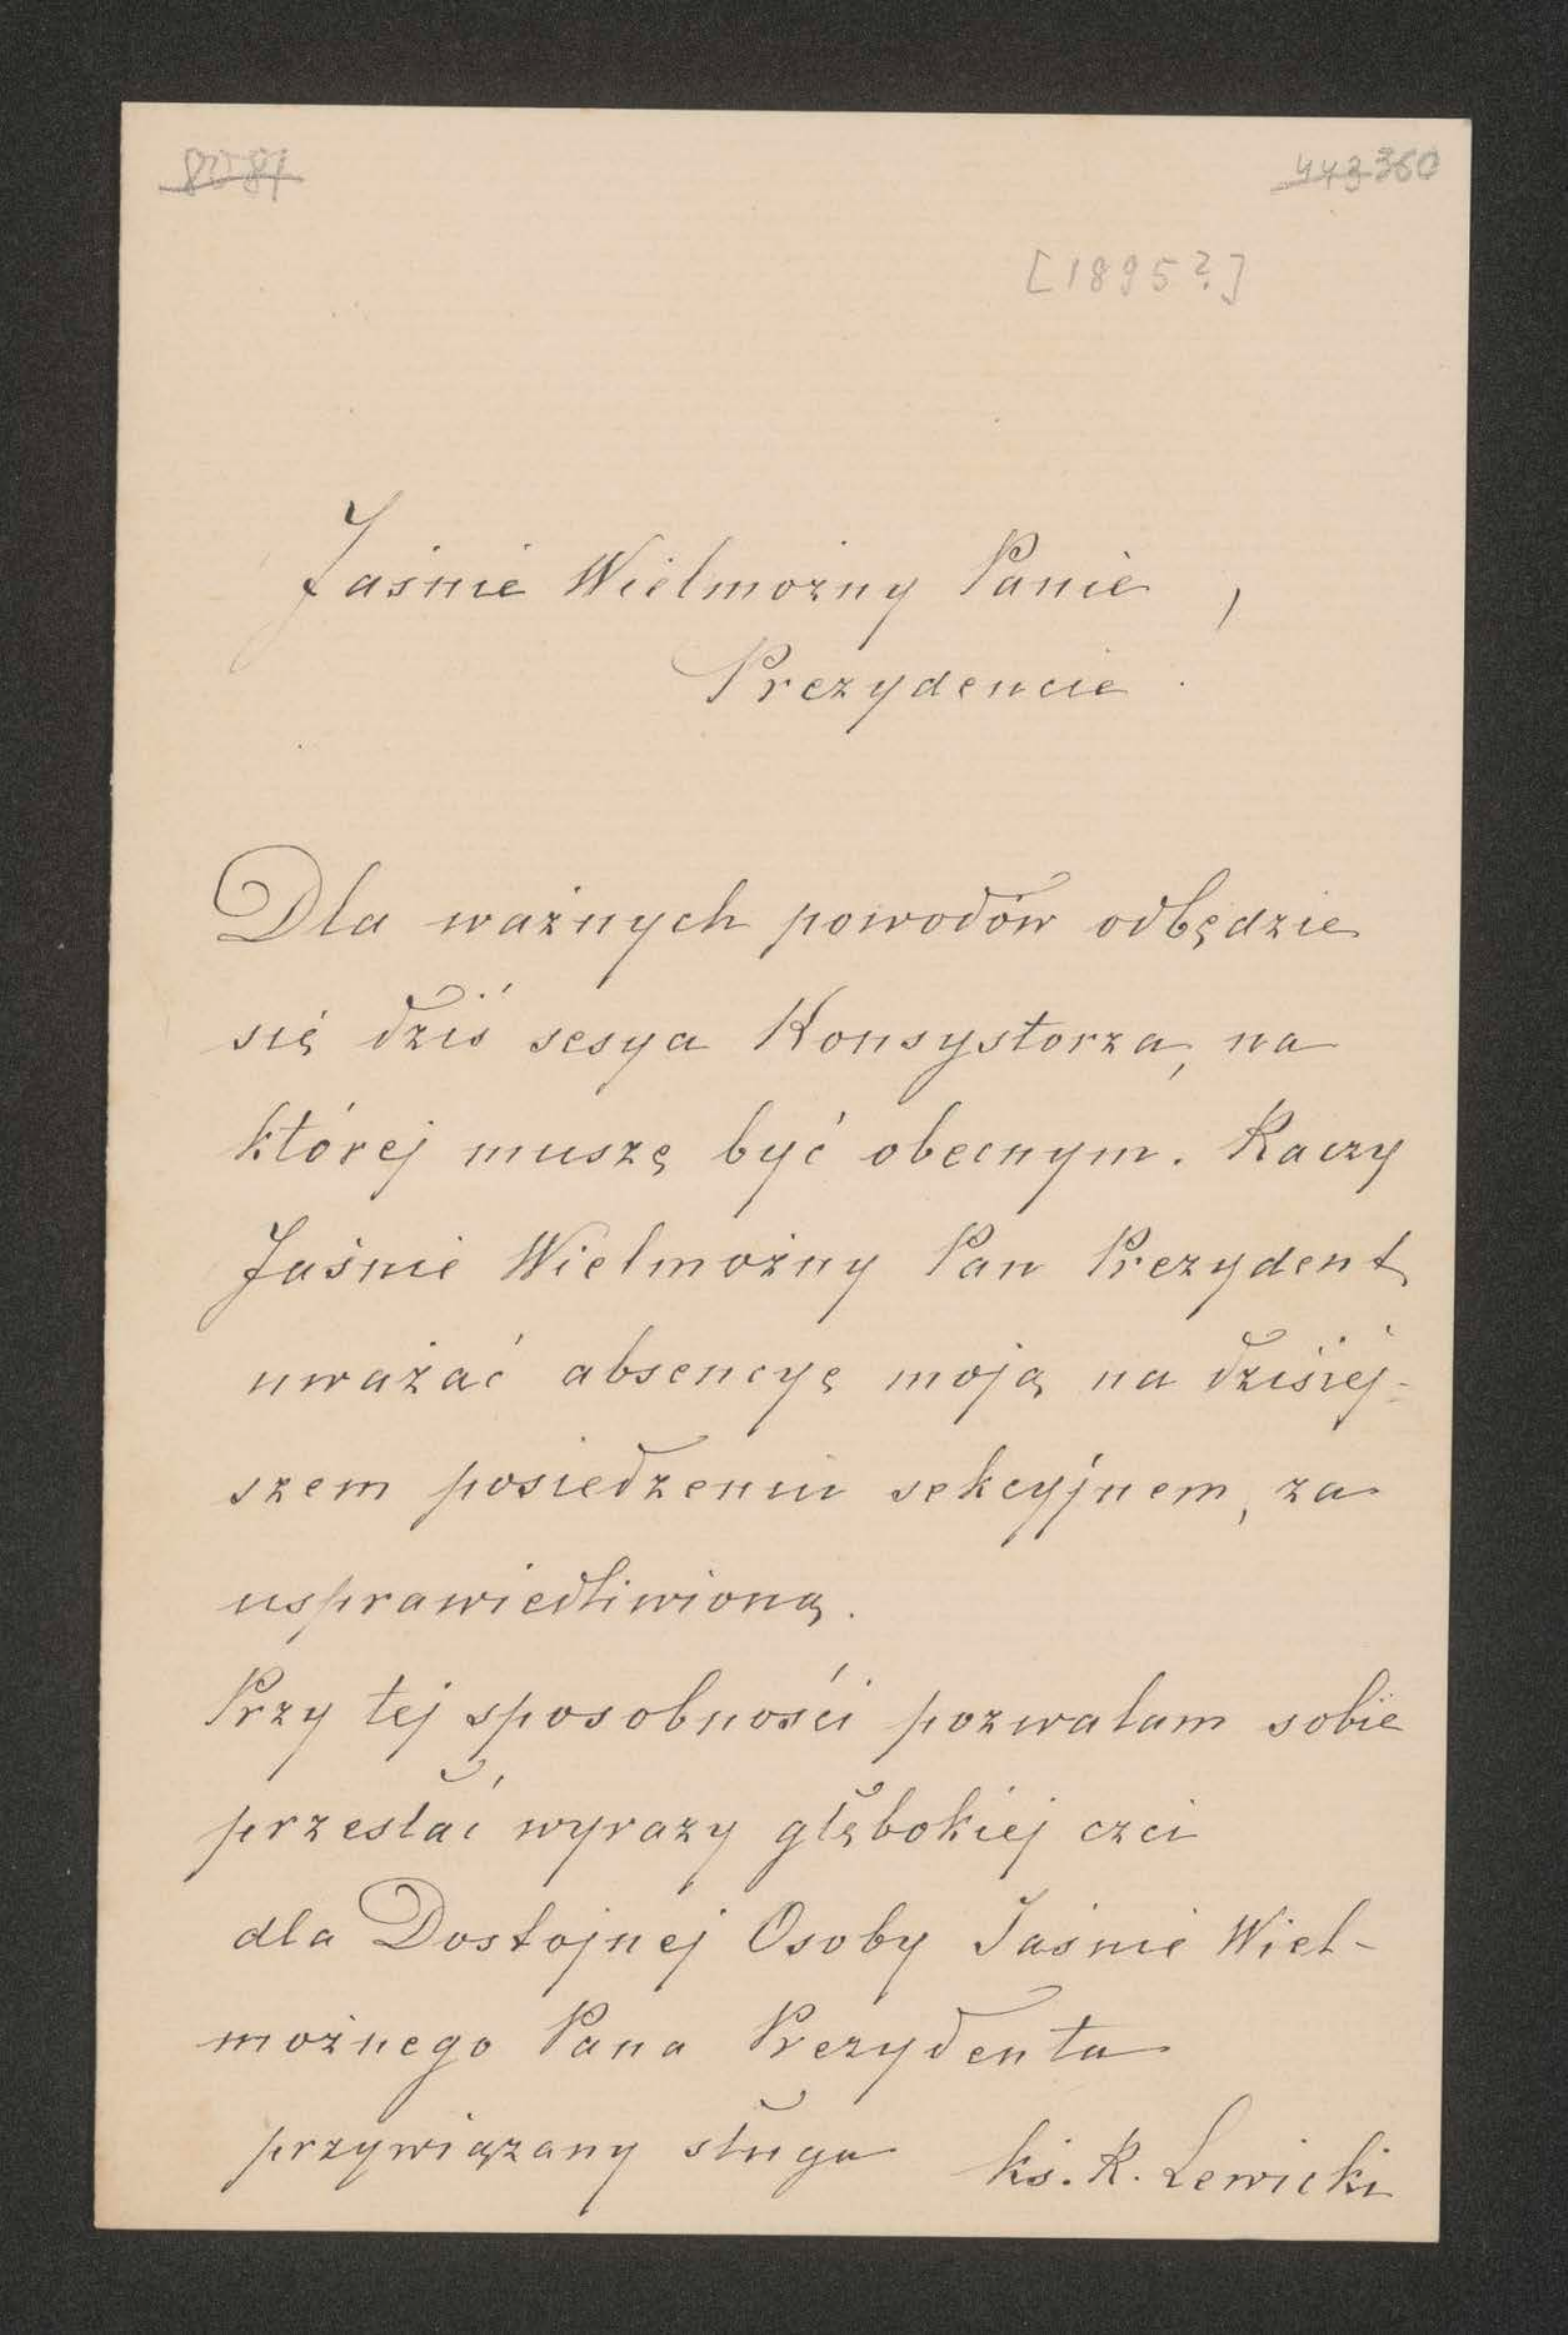 443 360
[1895?]
Jaśnie Wielmożny Panie,
Prezydencie.
Dla ważnych powodów odbędzie
się dziś sesya Konsystorza, na
której muszę być obecnym. Raczy
Jaśnie Wielmożny Pan Prezydent
uważać absencyę moją na dzisiej-
szem posiedzeniu sekcyjnem, za
usprawiedliwioną.
Przy tej sposobności pozwalam sobie
przesłać wyrazy głębokiej czci
dla Dostojnej Osoby Jaśnie Wiel-
możnego Pana Prezydenta
przywiązany sługa ks. R. Lewicki